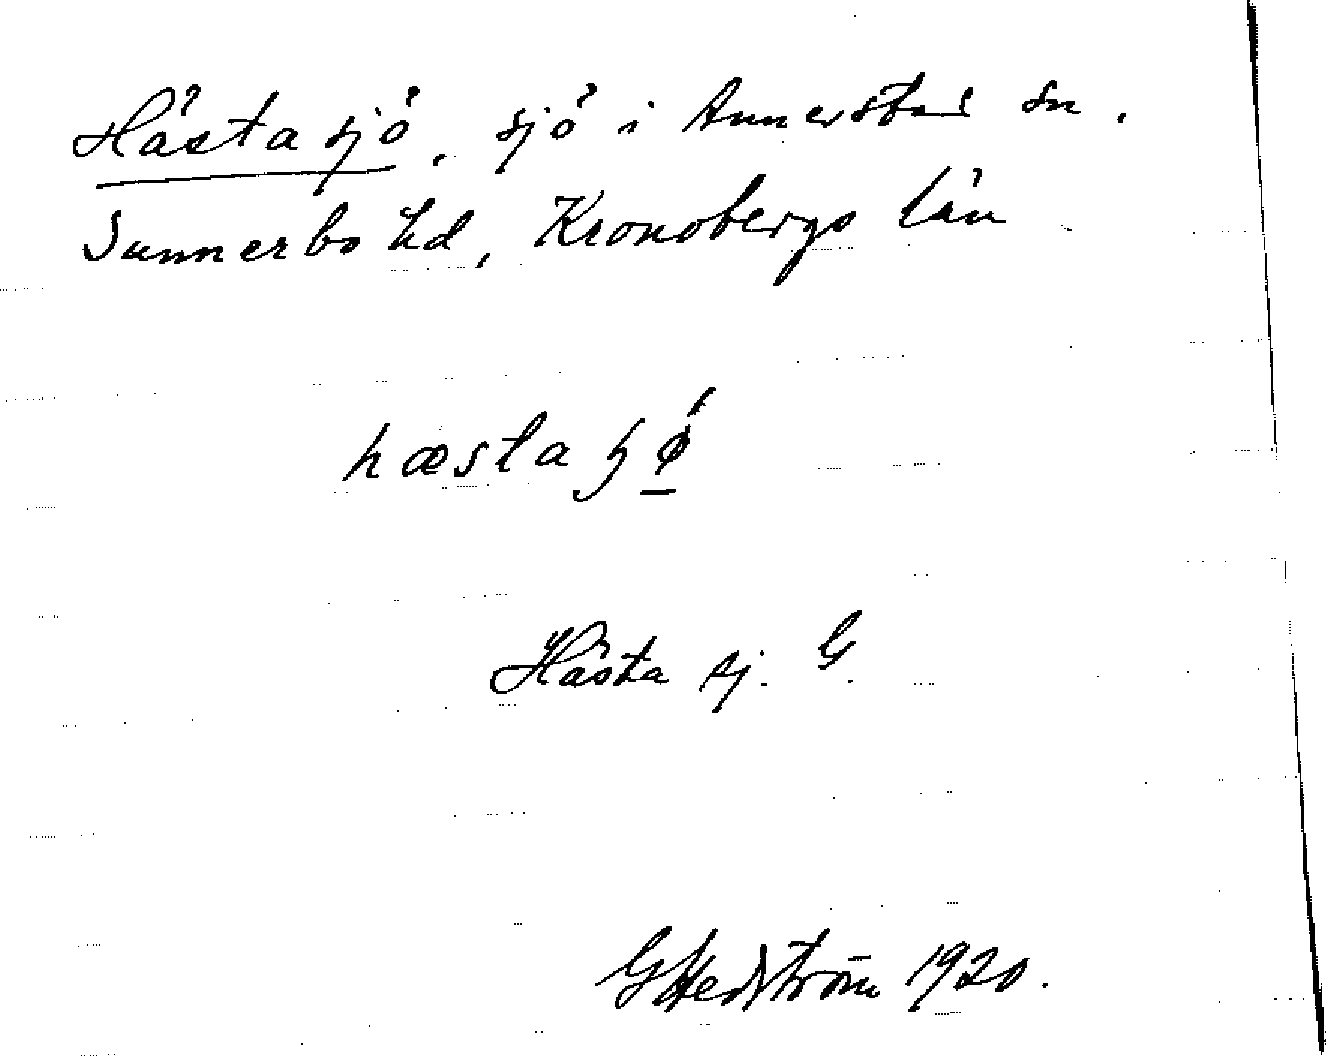 Hästasjö, sjö i Annerstad sn.
Sunnerbo hd, Kronobergs län
hæsta
Hästa sj. G.
G Hedström 1920.